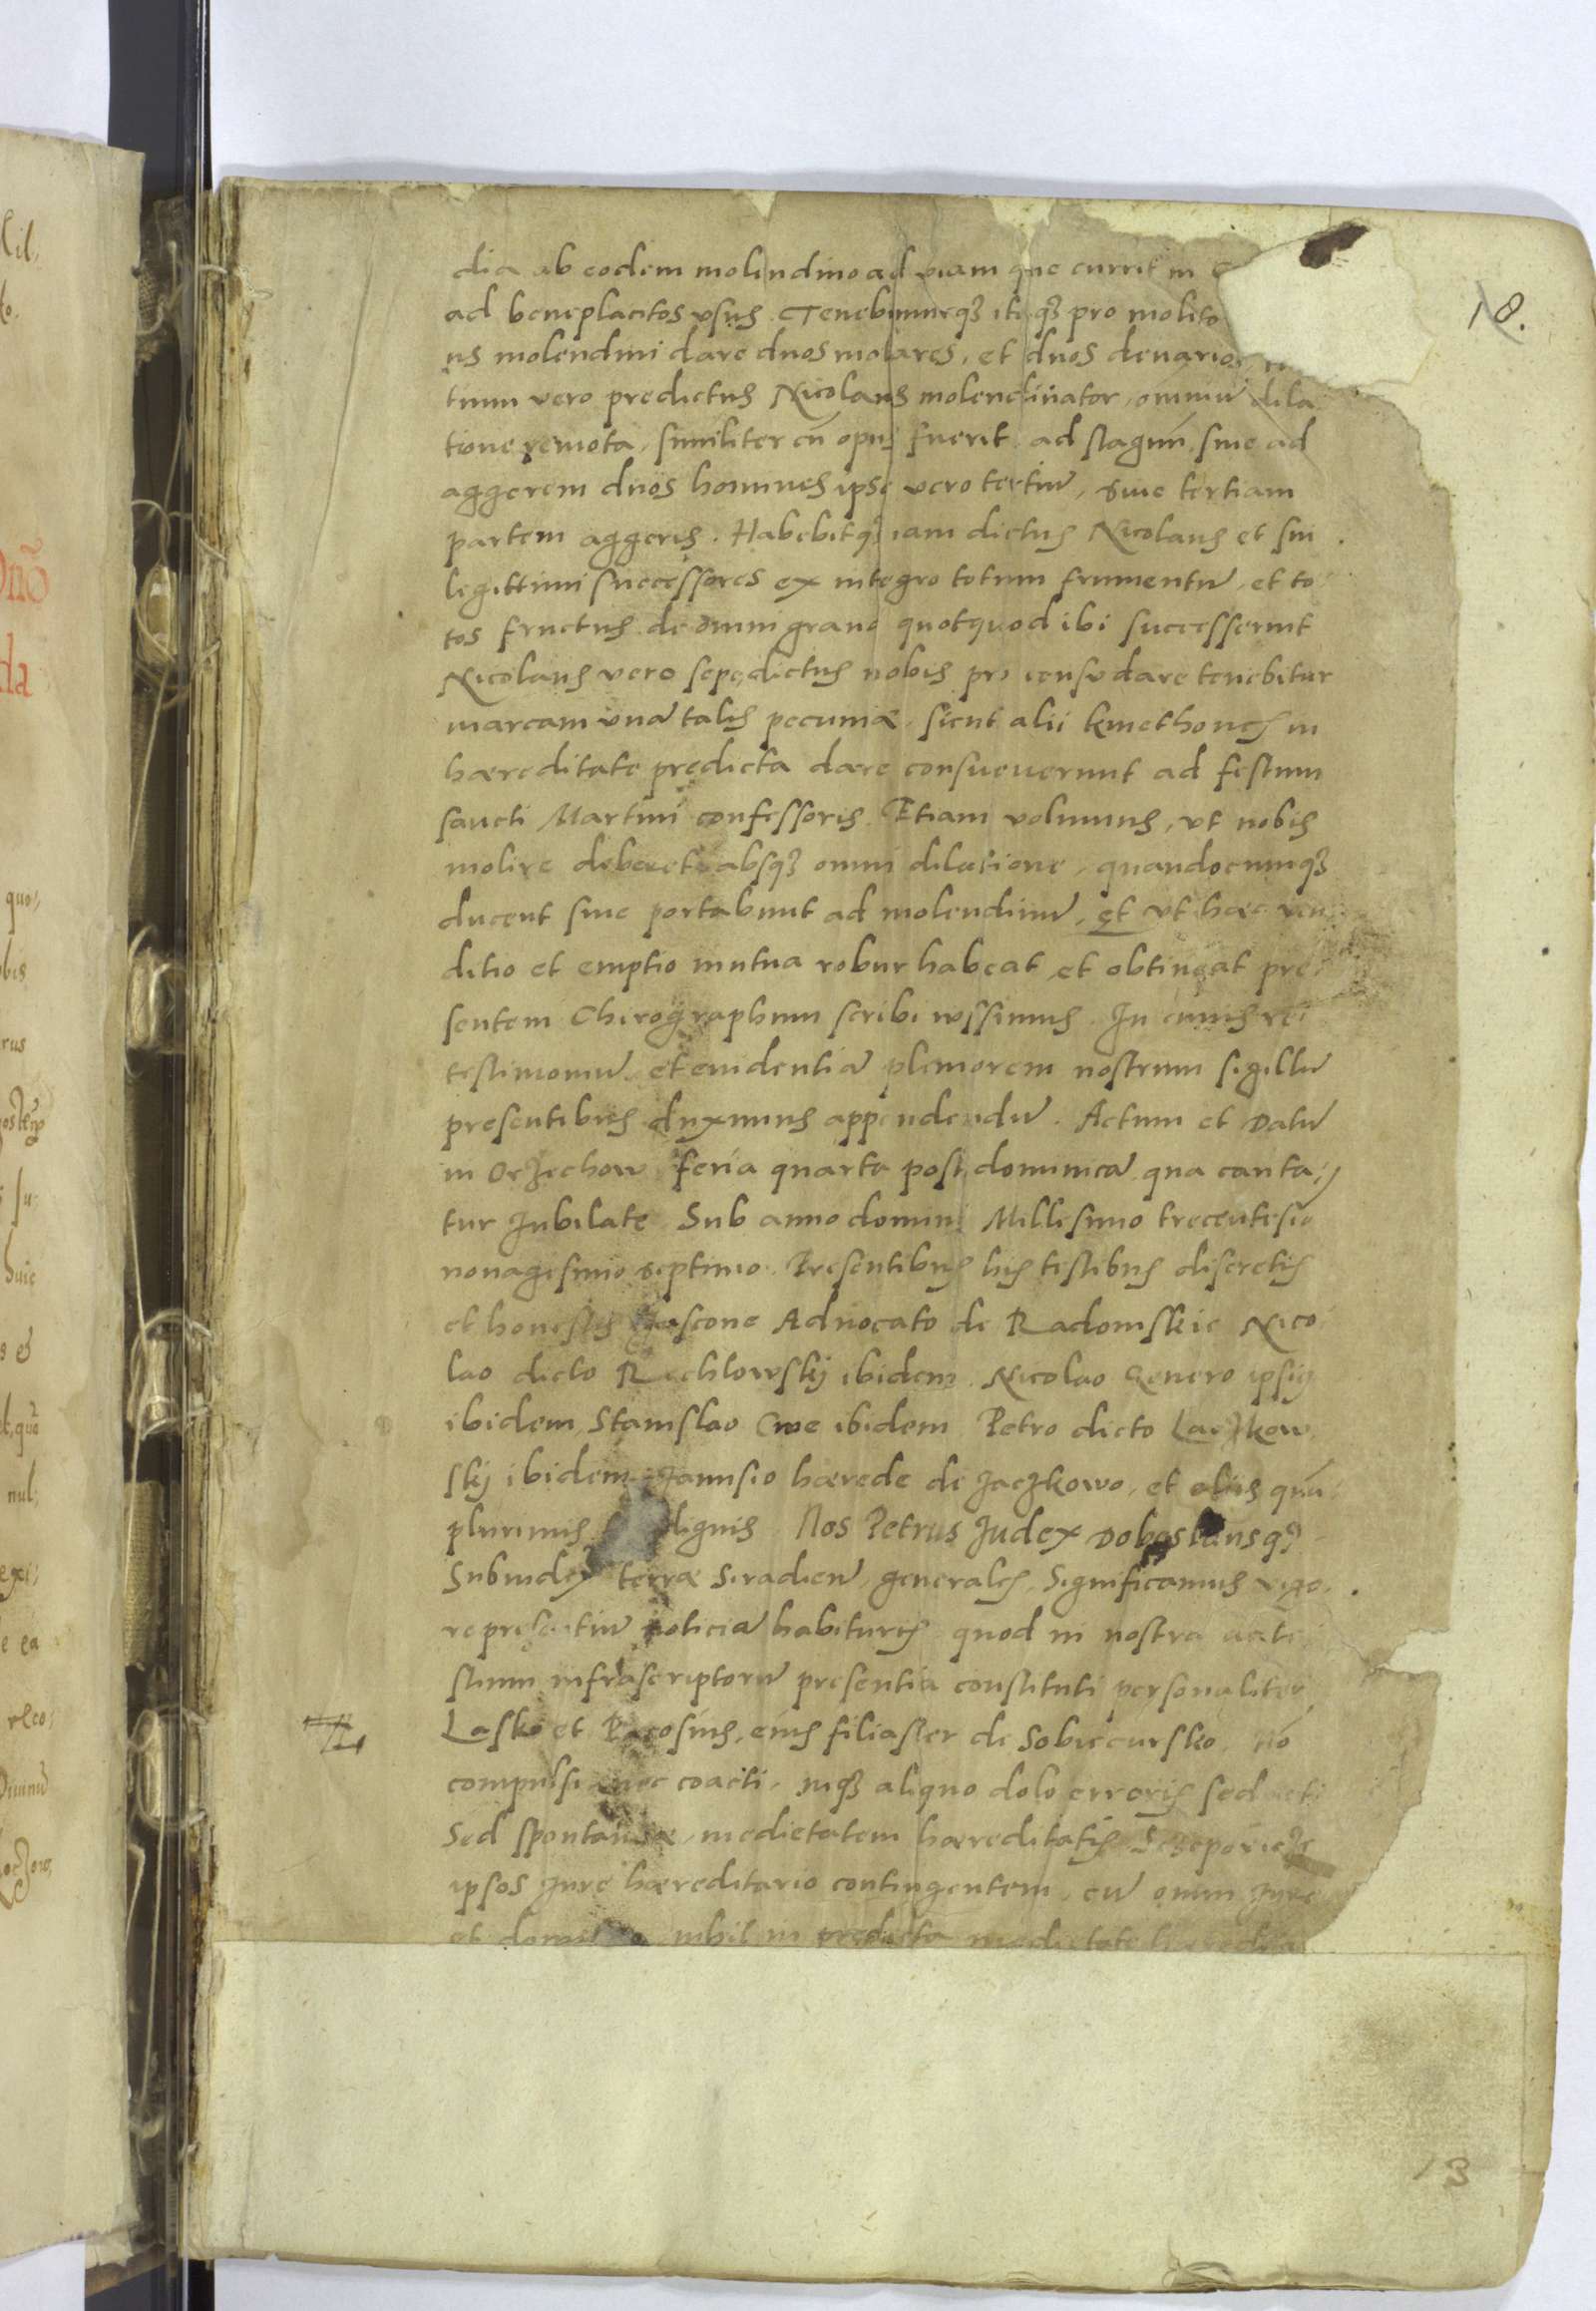 18.
dia ab eodem molindino ad viam que currit in
ad beneplacitos vsus. Tenebimurq3 itaq3 pro molito
us molendini dare duos molares, et duos denarios
tium vero predictus Nicolaus molendinator, omniũ dila
tione remota, similiter cũ opus fuerit ad stagnũ, siue ad
aggerem duos homines ipse vero tertiũ, siue tertiam
partem aggeris. Habebitq3 iam dictus Nicolaus et sui
legittimi successores ex integro totum frumentũ, et to
tos fructus de omni grano quotquod ibi successerint
Nicolaus vero sepedictus nobis pro censu dare tenebitur
marcam vnã talis pecuniæ, sicut alii kmethones in
hæreditate predicta dare consueuerunt ad festum
sancti Martini confessoris. Etiam volumus, vt nobis
molire deberet absq3 omni dilatione, quandocumq3
ducent siue portabunt ad molendinũ, et vt hæc ven
ditio et emptio mutua robur habeat et obtineat pre
sentem Chirographum scribi iussimus. In cuius rei
testimoniũ et euidentiã pleniorem nostrum sigillũ
presentibus duximus appendendũ. Actum et Datũ
in Orzechow feria quarta post dominicã qua canta
tur Jubilate Sub anno domini Millesimo trecentesio
nonagesimo septimo. Presentibus his testibus discretis
et honestis Advocato de Radomskie Nico
lao dicto Rechlowskÿ ibidem. Nicolao Genero ipsiỹ
ibidem, Stanislao ibidem Petro dicto Laczkow
skÿ ibidem Janusio hærede de Jaczkowo, et aliis quã
plurimis dignis Nos Petrus Judex Dobeslausq3
Subiudex terræ Siradieñ, generales, Significamus vigo
re presentiũ noticiã habituris quod in nostra
stium infrascriptorũ presentia constituti personaliter
Lasko et Pacosius, eius filiaster de Sobiecursko, Nõ
compulsi nec coacti, aliquo dolo erroris seducti
Sed spontanee, medietatem hæreditatis
ipsos Jure hæreditario contingentem, cũ omni Jure
et dominio nihil in predicta medietate
13